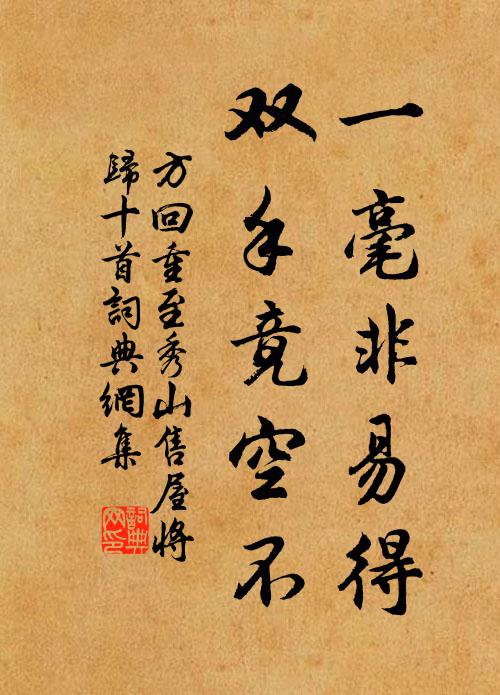 一毫非易得
双手竟空不
方回重至秀山售屋将
歸十首詞典網集
詞典網印